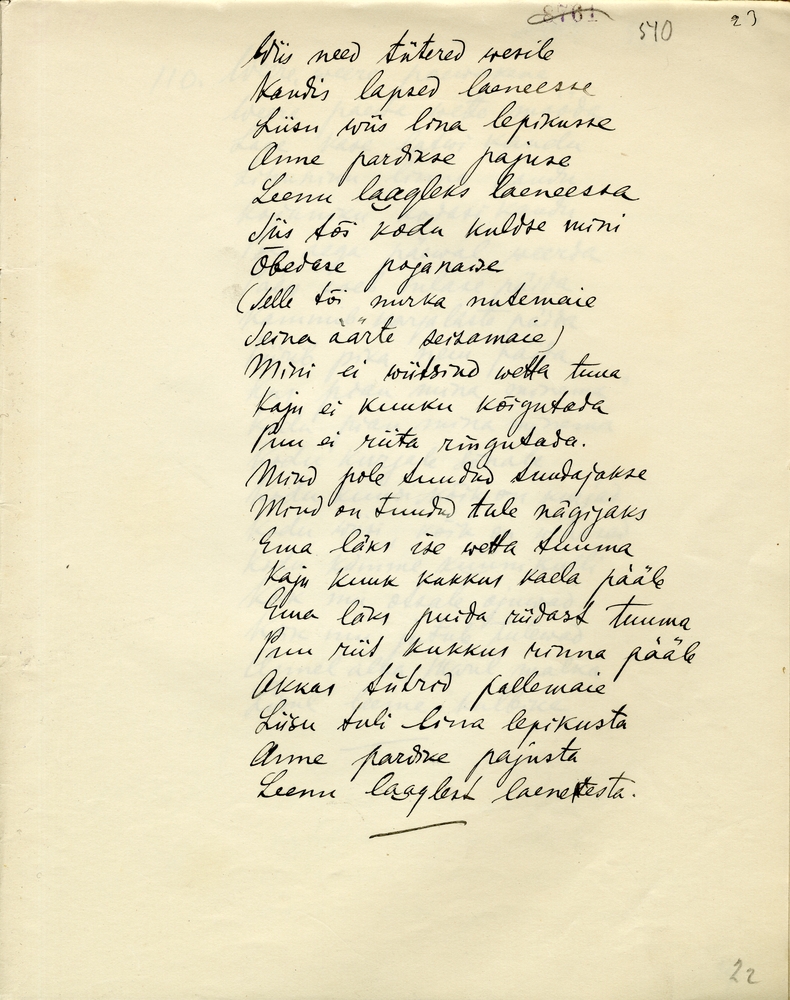 8761
540
23
Wiis need tütered wesile
Kandis lapsed laeneesse
Liisu wiis lina lepikusse
Anne pardikse pajuse
Leenu laagleks laeneessa
Siis tõi kodu kuldse mini
Õbedase pojanaise
(Selle tõi nurka nutemaie
Seina äärte seisamaie)
Mini ei wiitsind wetta tuua
Kaju ei kuuku kõigutada
Puu ei riita ringutada.
Mind pole tuudud tuudajakse
Mind on tuudud tule nägijaks
Ema läks ise wetta tuuma
Kaju kuuk kukkus kaela pääle
Ema läks puida riidast tuuma
Puu riit kukkus rinna pääle
Akkas tütrid pallemaie
Liisu tuli lina lepikusta
Anne pardike pajusta
Leenu laaglest laenetesta.
22